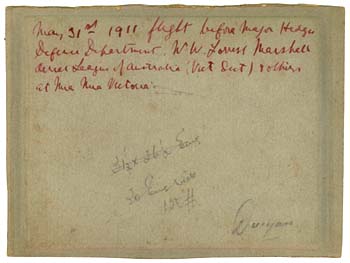 May 31st 1911 flight before Major Hedges
Defence Department. W. W. Forrest Marshall
Aerial League of Australia (Vict Sect) & others
at Mia Mia Victoria
Duigan